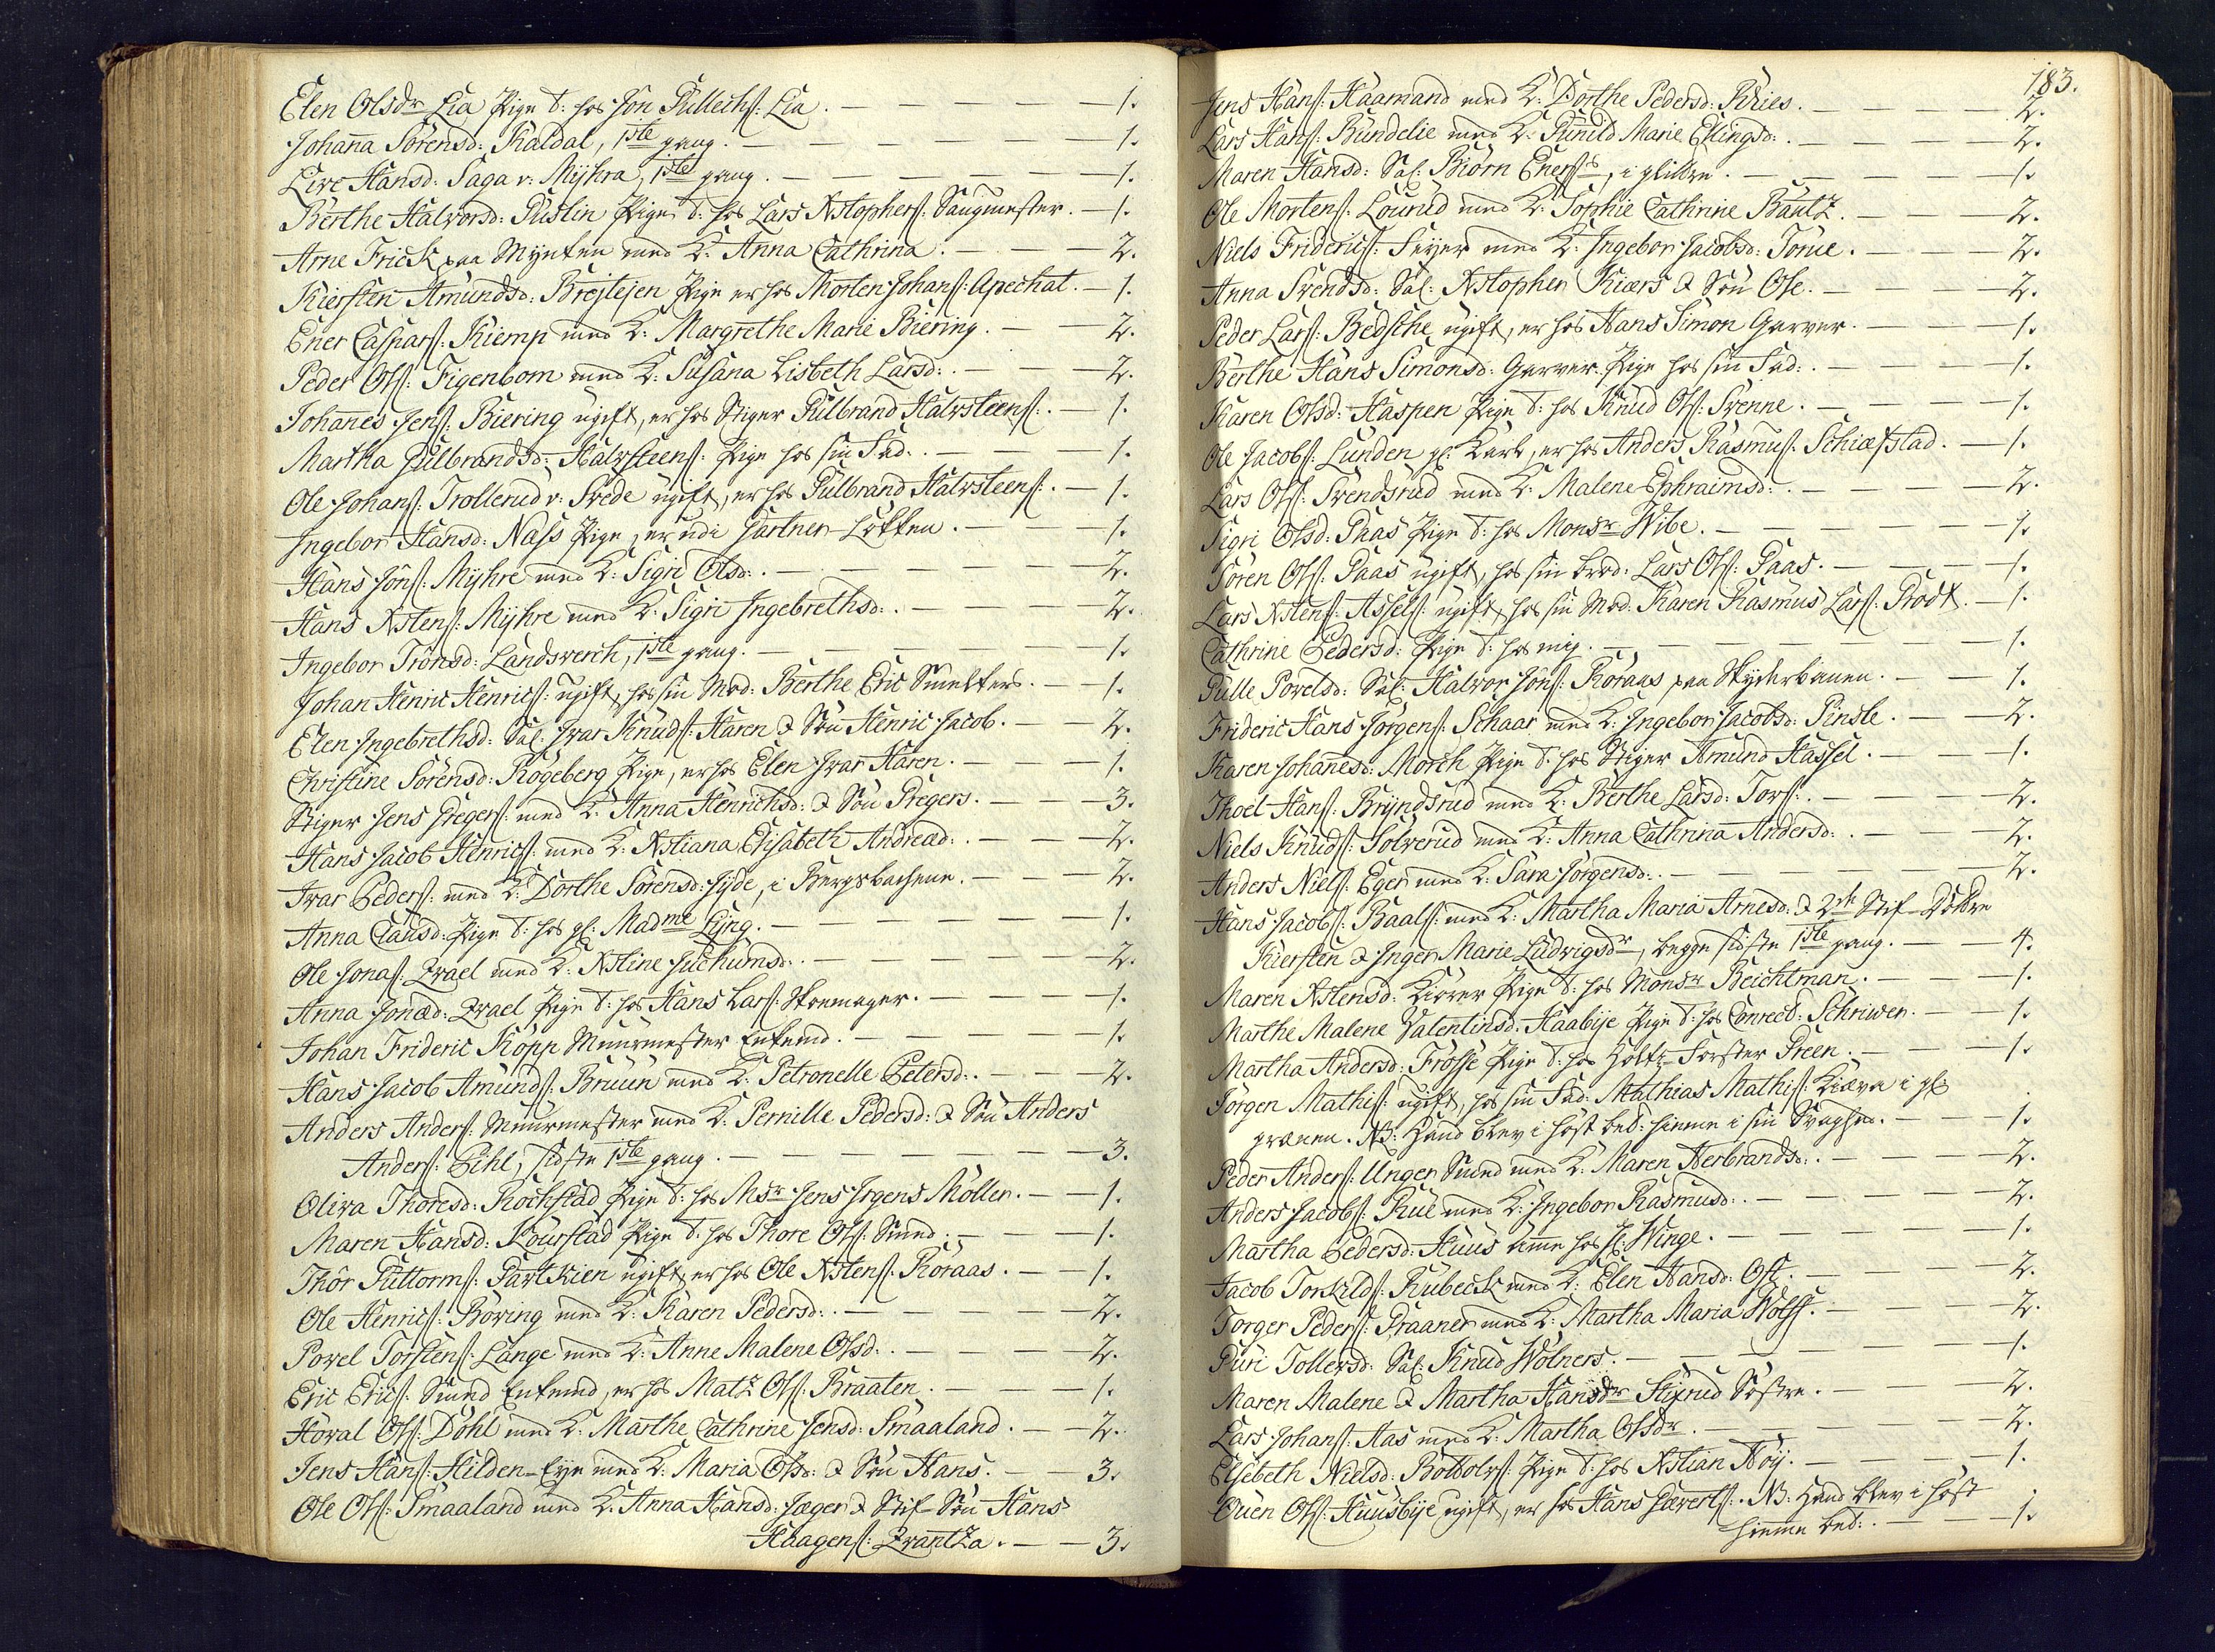 Elen Olsdr Lia Pige t: hos Jon Gullichs: Lia. — 1.
Johanna Sörensd: Kaldal, 1ste gang. — 1.
Live Hansd: Saga v: Mÿhra, 1ste gang. — 1.
Berthe Halvorsd: Guslin Pige t: hos Lars Xstophers: Saugmester. — 1.
Arne Frick paa Mynten med K: Anna Cathrina. — 2.
Kiersten Amundsd: Brejtejen Pige er hos Morten Johans: Apechat. — 1.
Ener Caspars: Kiemp med K: Margrethe Marie Biering. — 2.
Peder Ols: Figenbom med K: Susana Lisbeth Larsd: — 2.
Johanes Jens: Biering ugift, er hos Stiger Gulbrand Halvsteens: — 1.
Martha Gulbrandsd: Halvsteens: Pige hos sin Fad: — 1.
Ole Johans: Trollerud v: Svede ugift, er hos Gulbrand Halvsteens: — 1.
Ingebor Hansd: Nass Pige, er udi Gartner Løkken. — 1.
Hans Jöns: Mÿhre med K: Sigri Olsd: — 2.
Hans Xstens: Mÿhre med K: Sigri Ingebrethsd: — 2.
Ingebor Trönsd: Landsverch, 1ste gang. — 1.
Johan Henric Henrics: ugift, hos sin Mod: Berthe Eric Smelters. — 1.
Elen Ingebrethsd: Sal: Ivar Knuds: Haren & Sön Henric Jacob. — 2.
Christine Sörensd: Rogeberg Pige, er hos Elen Ivar Haren. — 1.
Stiger Jens Gregers: med K: Anna Henrichsd: & Sön Gregers. — 3.
Hans Jacob Henrics: med K: Xstiana Elisabeth Andread: — 2.
Ivar Peders: med K: Dorthe Sörensd: Jÿde, i Bergsbachene. — 2.
Anna Clausd: Pige t: hos gl: Madme Lÿng. — 1.
Ole Jonas: Qvael med K: Xstine Juchumsd: — 2.
Anna Jonæd: Qvael Pige t: hos Hans Lars: Skoemager. — 1.
Johan Frideric Köpp Muurmester Enkemd. — 1.
Hans Jacob Amunds: Bruun med K: Petronelle Petersd: — 2.
Anders Anders: Muurmester med K: Pernille Pedersd: & Sön Anders
Anders: Pihl, sidste 1ste gang. — 3.
Oliva Thoresd: Rochstad Pige t: hos Msr Jens Jrgens Möller. — 1.
Maren Hansd: Kourstad Pige t: hos Thore Ols: Smed. — 1.
Thör Guttorms: Gart Kien ugift, er hos Ole Xstens: Röraas. — 1.
Ole Henrics: Böving med K: Karen Pedersd: — 2.
Povel Torstens: Lange med K: Anne Malene Olsd: — 2.
Eric Erics: Smed Enkemd, er hos Matz Ols: Braaten. — 1.
Howal Ols: Döhl med K: Marthe Cathrine Jensd: Smaaland. — 2.
Jens Hans: Hilden-Eÿe med K: Maria Olsd: & Sön Hans. — 3.
Ole Ols: Smaaland med K: Anna Hansd: Jæger & Stif-Sön Hans
Haagens: Qvantza. — 3.
183.
Jens Hans: Haamand med K: Dorthe Pedersd: Kries. — 2.
Lars Hans: Bundelie med K: Gunild Marie Ellingsd: — 2.
Maren Hansd: Sal: Biörn Eners — 1.
Ole Mortens: Lourud med K: Sophie Cathrine Bautz. — 2.
Niels Friderics: Feyer med K: Ingebor Jacobsd: Torüe. — 2.
Anna Svendsd: Sal: Xstopher Kiærs & Sön Ole. — 2.
Peder Lars: Bedsche ugift, er hos Hans Simon Garver. — 1.
Berthe Hans Simonsd: Garver Pige hos sin Fad: — 1.
Karen Olsd: Haspen Pige t: hos Knud Ols: Svenne. — 1.
Ole Jacobs: Lunden gl: Karl, er hos Anders Rasmus: Schiæfstad. — 1.
Lars Ols: Svendsrud med K: Malene Ephraimsd: — 2.
Sigri Olsd: Paas Pige t: hos Monsr Wibe. — 1.
Sören Ols: Paas ugift, hos sin brod: Lars Ols: Paas. — 1.
Lars Xstens: Assels: ugift, hos sin Mod: Karen Rasmus Lars: Prodt. — 1.
Cathrine Pedersd: Pige t: hos mig. — 1.
Gulle Povelsd: Sal: Halvor Jöns: Röraas paa Skÿderbanen. — 1.
Frideric Hans Jörgens: Schaar med K: Ingebor Jacobsd: Pinsle. — 2.
Karen Johanesd: Morch Pige t: hos Stiger Amund Hassel. — 1.
Thoel Hans: Brÿndsrud med K: Berthe Larsd: Tors: — 2.
Niels Knuds: Solverud med K: Anna Cathrina Andersd: — 2.
Anders Niels: Eger med K: Sara Jörgensd: — 2.
Hans Jacobs: Baals: med K: Martha Maria Arnesd: & 2de Stif-Döttre
Kiersten & Inger Marie Ludvigsdr, begge sidste 1ste gang. — 4.
Maren Xstensd: Kiörer Pige t: hos Monsr Beichtman. — 1.
Marthe Malene Valentinsd: Haabije Pige t: hos Conrect: Schriwer. — 1.
Martha Andersd: Frösse Pige t: hos Holtz-Forster Preen. — 1.
Jörgen Mathis: ugift, hos sin Fad: Mathias Mathis: Kiæra i gl:
grænen. NB: Hand blev i höst bed: hiemme i sin Svaghed. — 1.
Peder Anders: Unger Smed med K: Maren Herbrandsd: — 2.
Anders Jacobs: Rüe med K: Ingebor Rasmusd: — 2.
Martha Pedersd: Huus ame hos H: Winge. — 1.
Jacob Torkilds: Rübeck med K: Elen Hansd: Oft. — 2.
Torger Peders: Praaner med K: Martha Maria Wolff. — 2.
Guri Tollersd: Sal: Knud Wolners. — 1.
Maren Malene & Martha Hansdr Hÿrud Söstre. — 2.
Lars Johans: Aas med K: Martha Olsdr. — 2.
Elsebeth Nielsd: Bottolvs: Pige t: hos Xstian Höÿ. — 1.
Ouen Ols: Huusbÿe ugift, er hos Hans Siverts: NB: Hand blev i höst
hiemme bed: — 1.